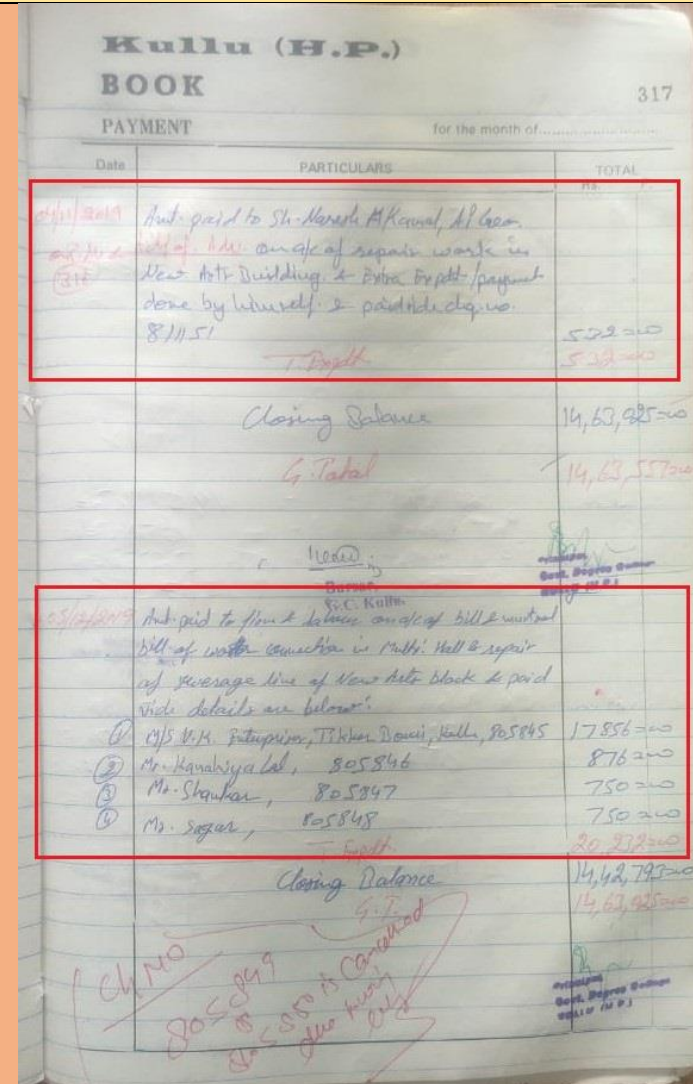 Kullu (H.P.)
BOOK
317
PAYMENT for the month of
Date PARTICULARS TOTAL
Rs. P.
Amt. paid to Sh. Naresh
on a/c of repair work in
New Arts Building & Extra Expdt/payment
done by himself & paid vide chq. no.
811151 532=00
T. Expdt 532=00
Closing Balance
G. Total 14,63,557=00
Bursar
G.C. Kullu
Principal
Govt. Degree College
Kullu (H.P.)
Amt. paid to firm & labour on a/c of bill &
bill of water connection in Multi. Hall & repair
of sewerage line of New Arts block & paid
vide details are below:
① M/S V.K. Enterprises, 805845 17856=00
② Mr. Kanahiya Lal, 805846 876=00
③ Mr. Shankar, 805847 750=00
④ Mr. Sagar, 805848 750=00
T. Expdt 20,232=00
Closing Balance 14,42,793=00
G.T. 14,63,025=00
Ch NO
805849
is Cancelled
Principal
Govt. Degree College
Kullu (H.P.)